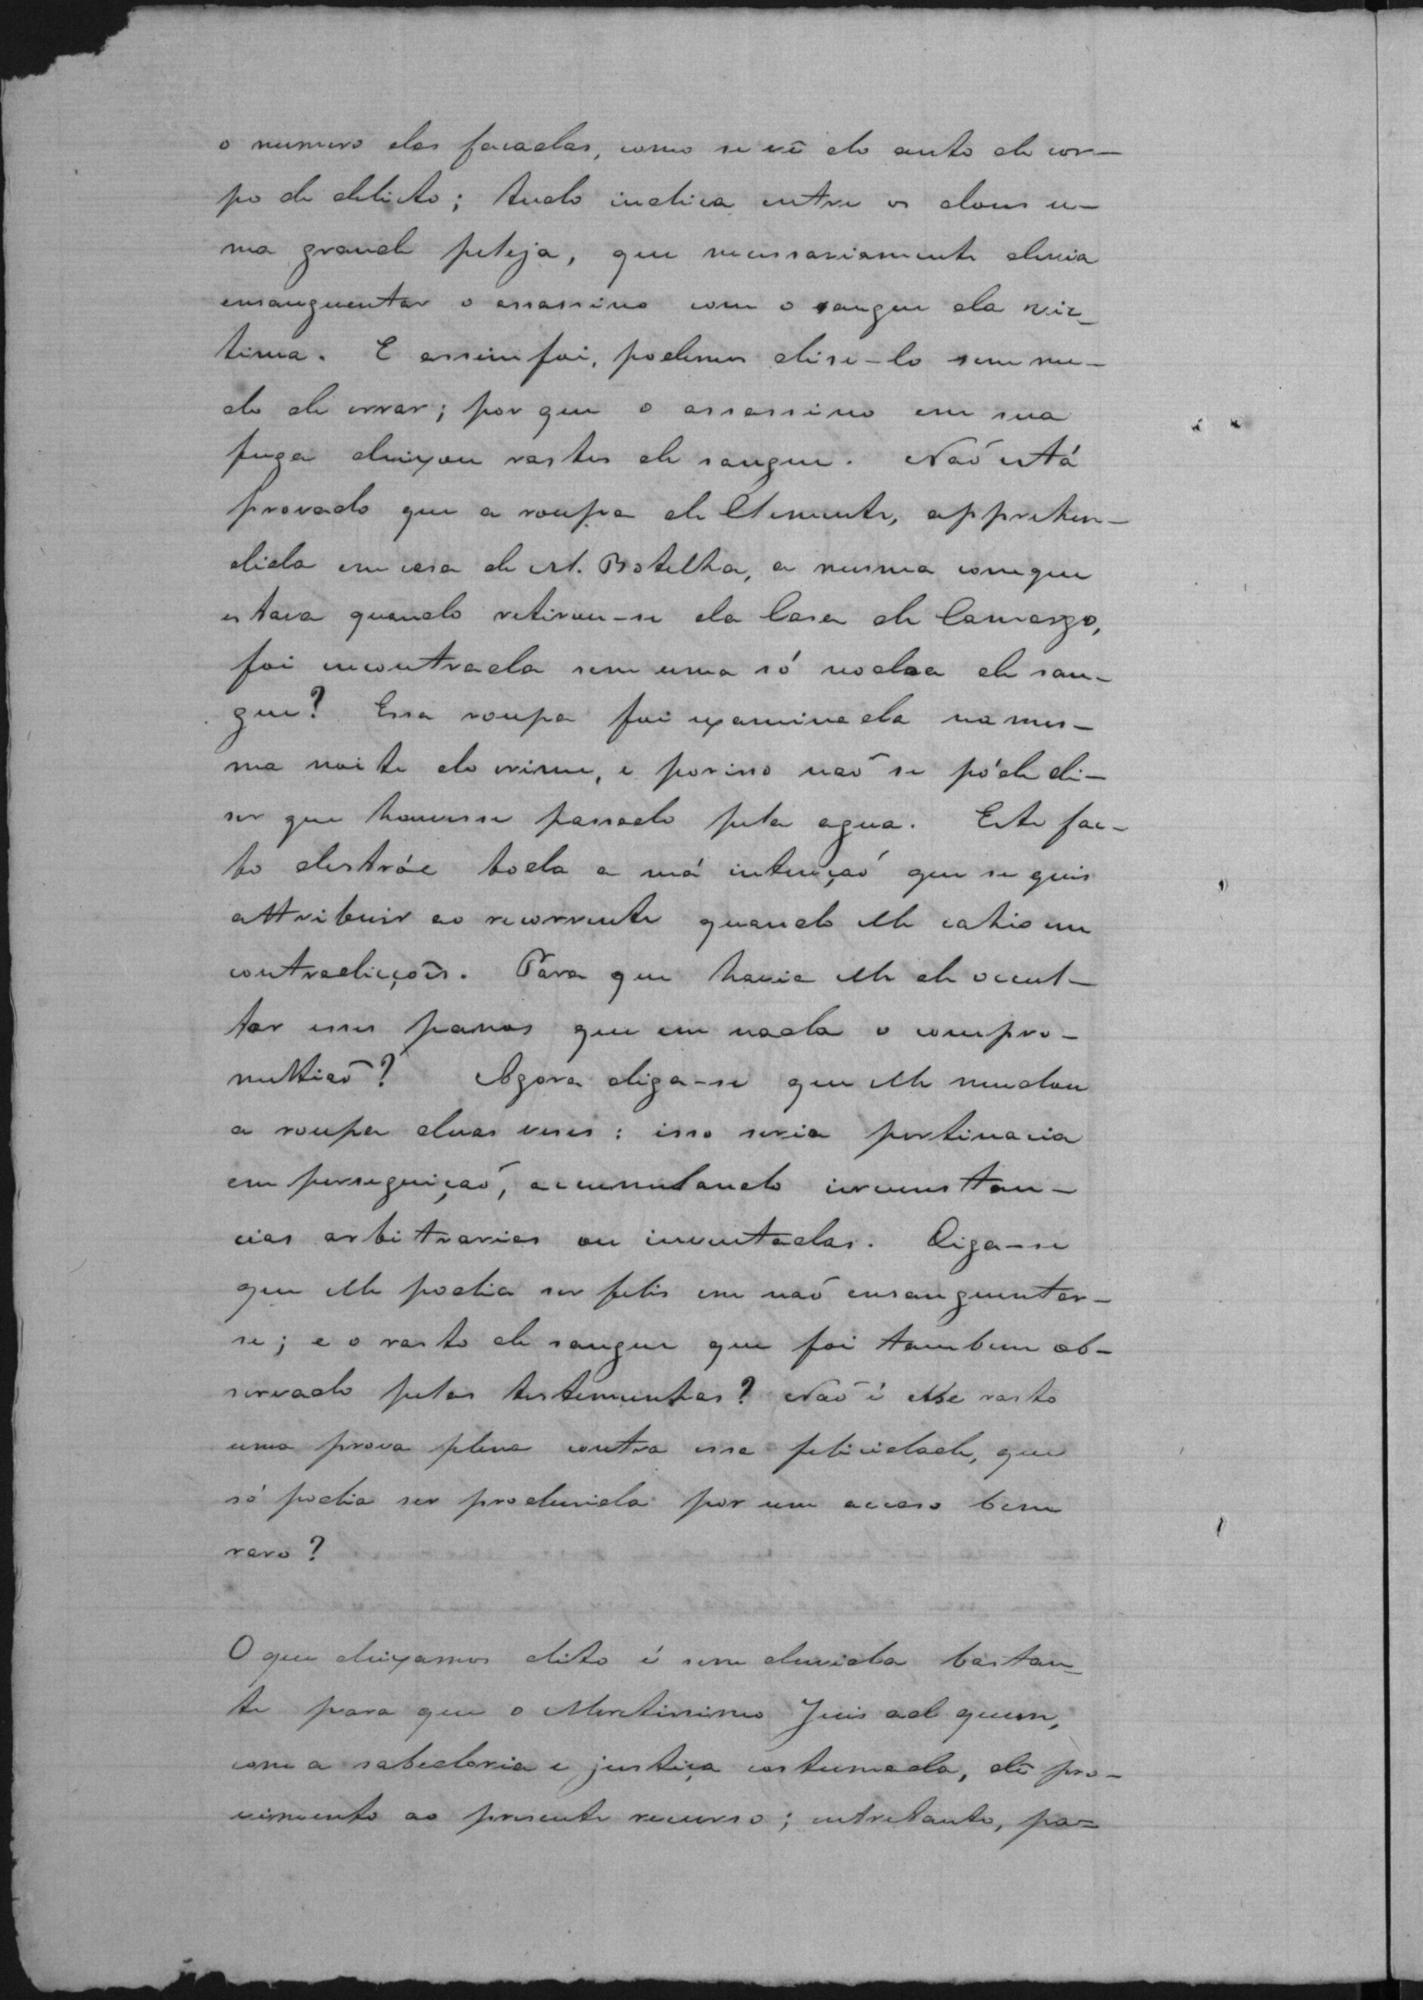 o numero das facadas, como se vê do auto de cor-
po de delicto; tudo indica entre os dous u-
ma grande peleja, que necessariamente devia
ensanguentar o assassino com o sangue da vic-
tima. E assim foi, podemos dise-lo sem me-
do de errar; por que o assassino em sua
fuga deixou rastos de sangue. Não está
provado que a roupa de Clemente, apprehen-
dida em casa de M. Botelho, a mesma com que
estava quando retirou-se da Casa de Camargo,
foi encontrada sem uma só nodoa de san-
gue? Essa roupa foi examinada na mes-
ma noite do crime, e por isso não se póde di-
ser que houvesse passado pela agua. Este fac-
to destróe toda a má intenção que se quis
attribuir ao recorrente quando elle cahio em
contradicções. Para que havia elle de occul-
tar esses panos que em nada o compro-
mettião? Agora diga-se que elle mudou
a roupa duas veses: isso seria pertinacia
em perseguição, accumulando circunstan-
cias arbitrarias ou inventadas. Diga-se
que elle podia ser felis em não ensanguentar-
se; e o rasto de sangue que foi tambem ob-
servado pelas testemunhas? Não é esse rasto
uma prova plena contra essa felicidade, que
só podia ser produsida por um acaso bem
raro?
O que deixamos dito é sem duvida bastan-
te para que o Meretissimo Juis ad quem,
com a sabedoria e justiça costumada, dê pro-
vimento ao presente recurso; entretanto, pa-